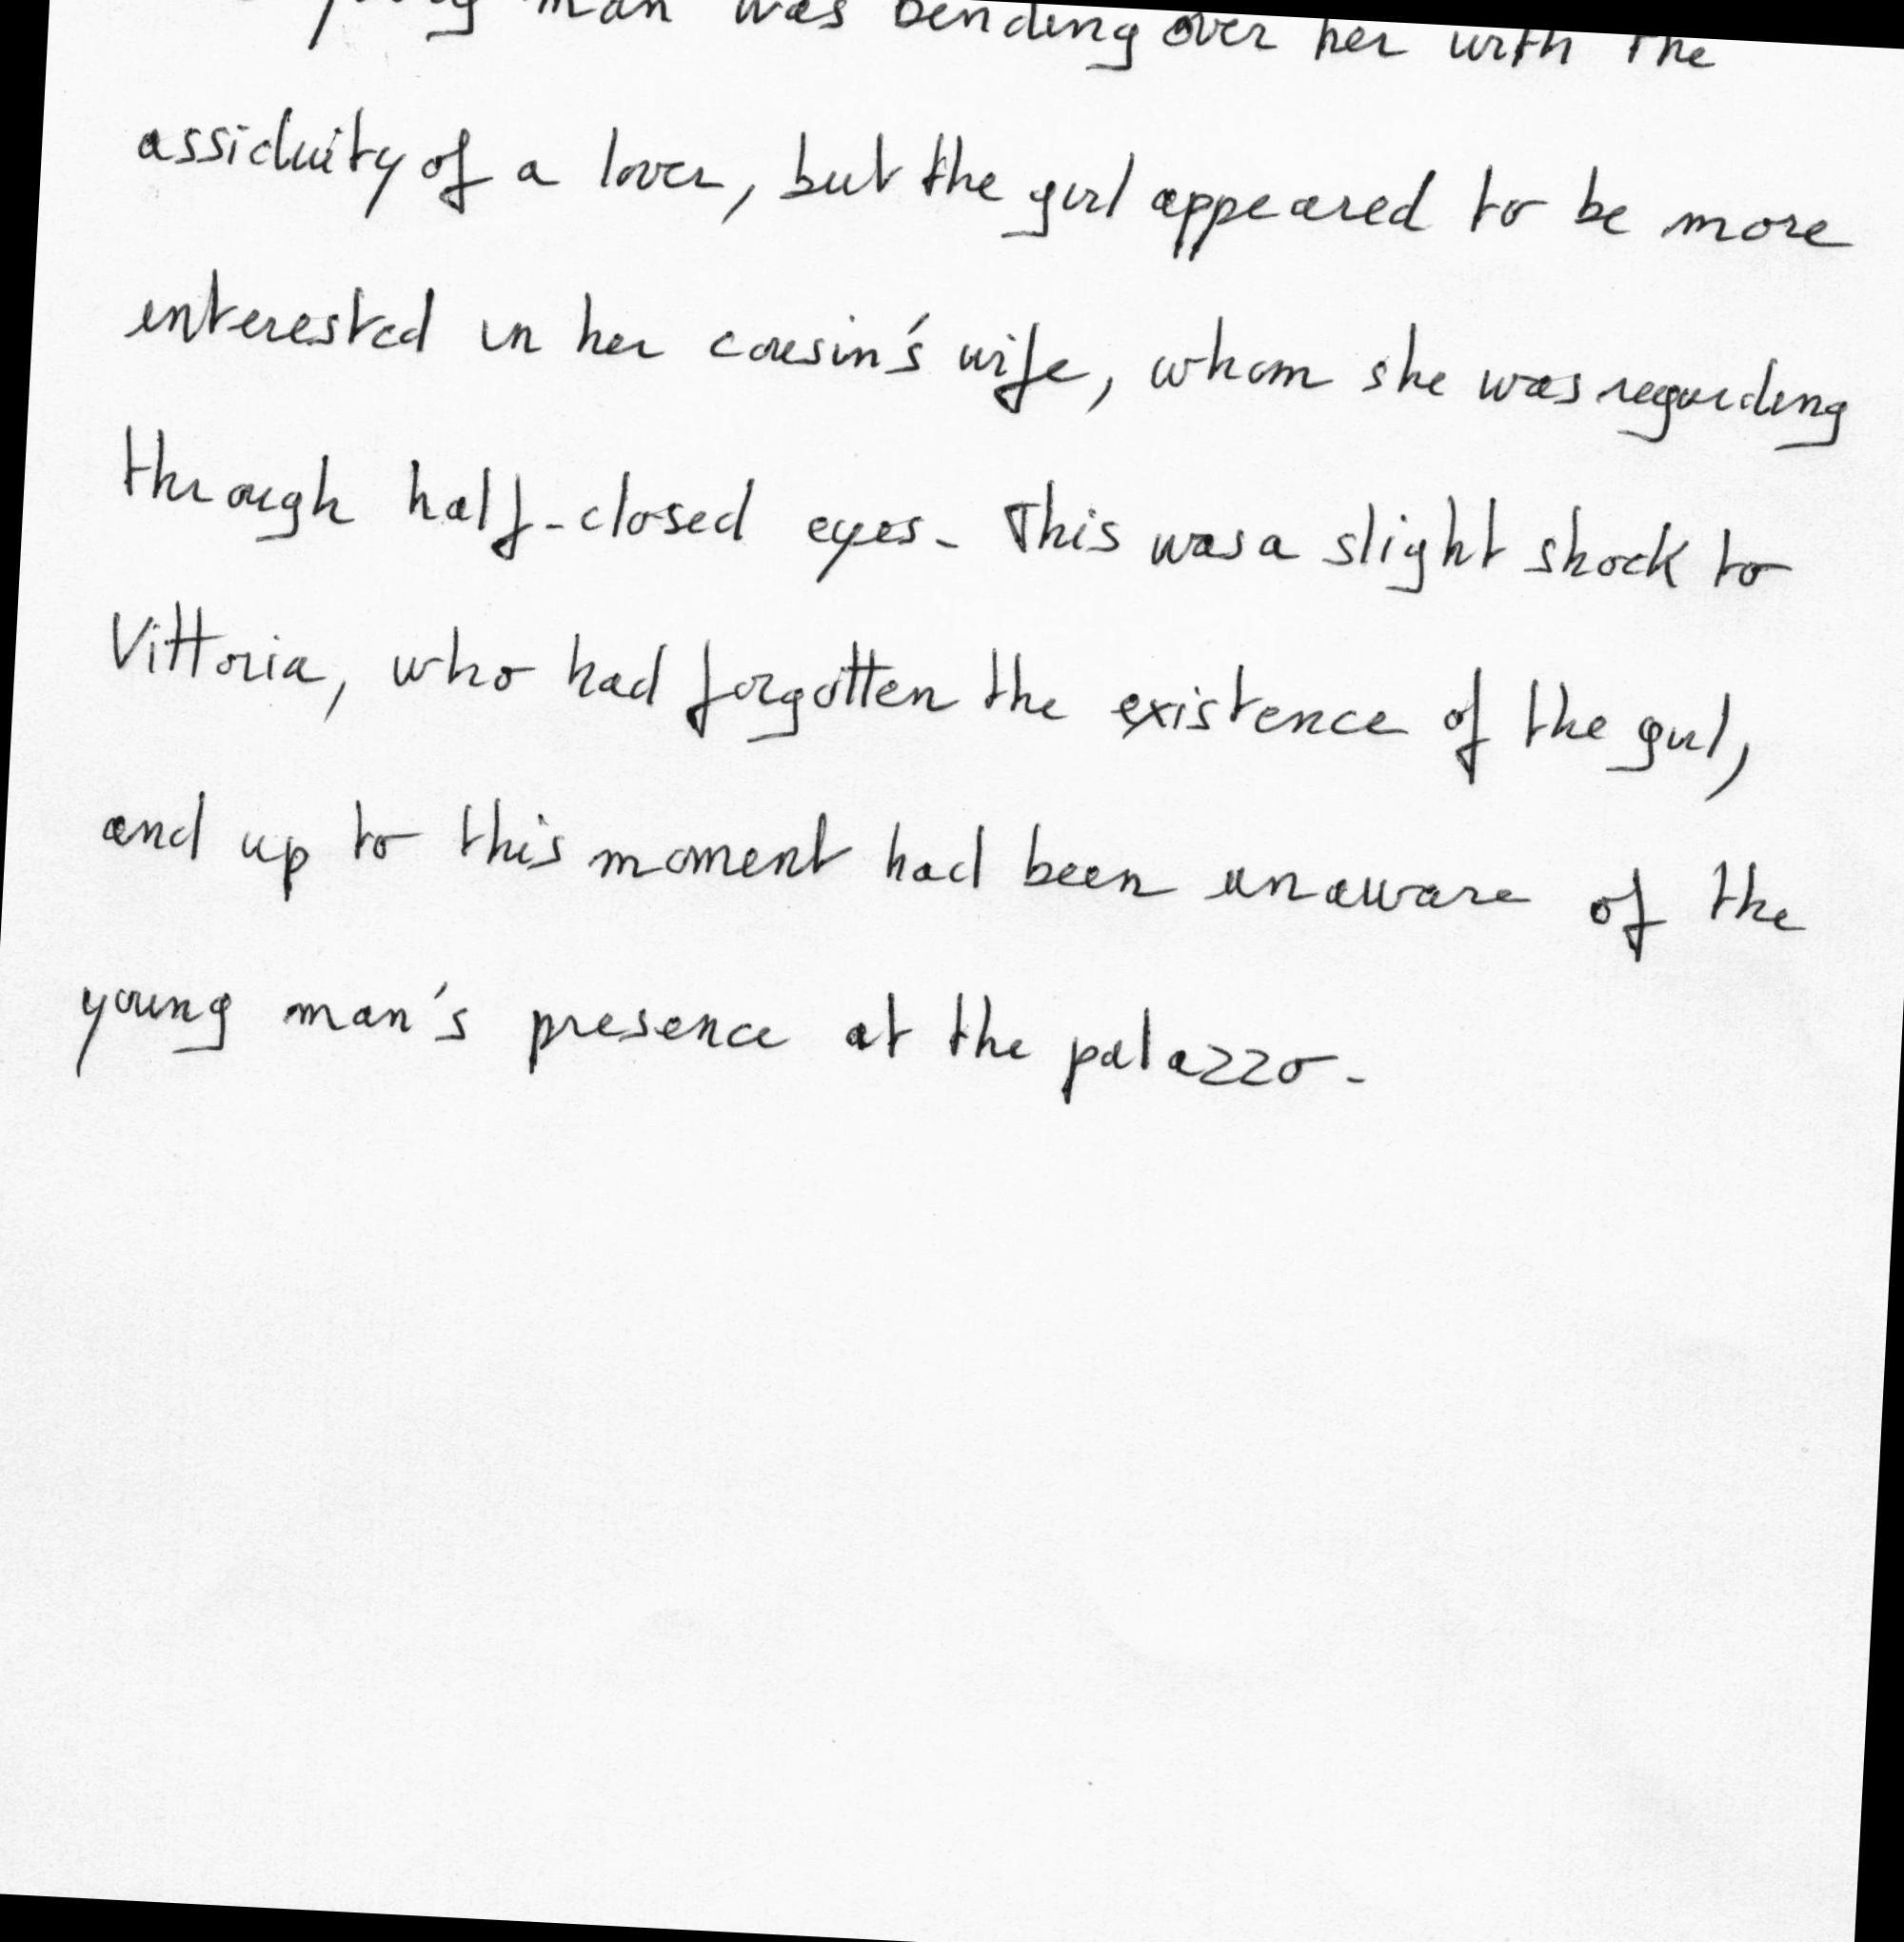 young man was bending over her with the
assiduity of a lover, but the girl appeared to be more
interested in her cousin's wife, whom she was regarding
through half-closed eyes. This was a slight shock to
Vittoria, who had forgotten the existence of the girl,
and up to this moment had been unaware of the
young man's presence at the palazzo.